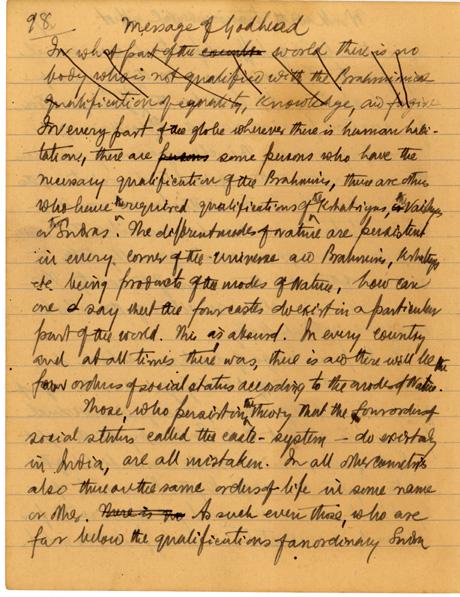 98. Message of Godhead
In what part of the countr world there is no
body who is not qualified with the Brahminical
qualification of equality, knowledge, and
In every part of the globe wherever there is human habi-
tations, there are persons some persons who have the
necessary qualification of the Brahmins, there are others
who have the required qualifications of the Kshatriyas, the Vaishyas
or the Sudras. The different modes of nature are persistent
in every corner of the universe and Brahmins, Kshatriyas
etc being products of the modes of Nature, how can
one say that the four castes do exist in a particular
part of the world. This is absurd. In every country
and at all times there was, there is and there will be the
four orders of social status according to the modes of Nature.
Those, who persist in the theory that the four orders of
social status called the caste-system - do exist only
in India, are all mistaken. In all other countries
also there are the same orders of life in some name
or other. There is no As such even those, who are
far below the qualifications of an ordinary Sudra